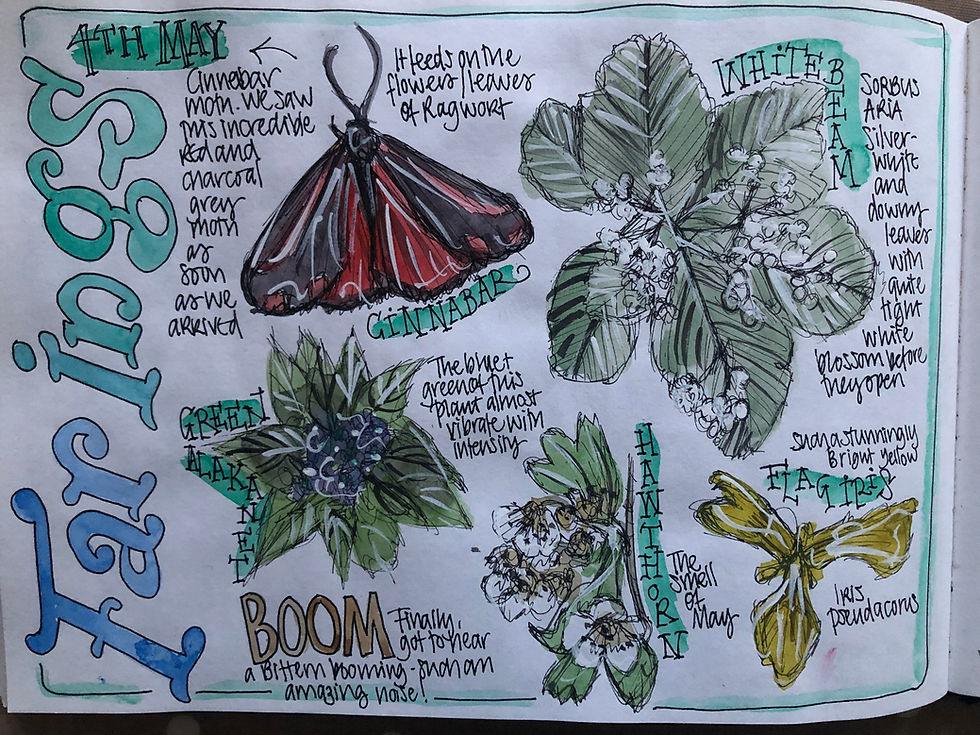 Far ings
4TH MAY
Cinnebar
moth. we saw
this incredible
red and
charcoal
grey
moth
as
soon
as we
arrived
It feeds on the
flowers/leaves
of Ragwort
CINNABAR
WHITEBEAM
SORBUS
ARIA
Silver-
white
and
downy
leaves
with
quite
tight
white
blossom before
they open
GREEN
ALAKANET
The blue +
green of this
plant almost
vibrate with
intensity
HAWTHORN
The
smell
of
May
such a stunningly
Bright yellow
FLAG IRIS
Iris
pseudacorus
BOOM
Finally
got to hear
a Bittern booming - such an
amazing noise!